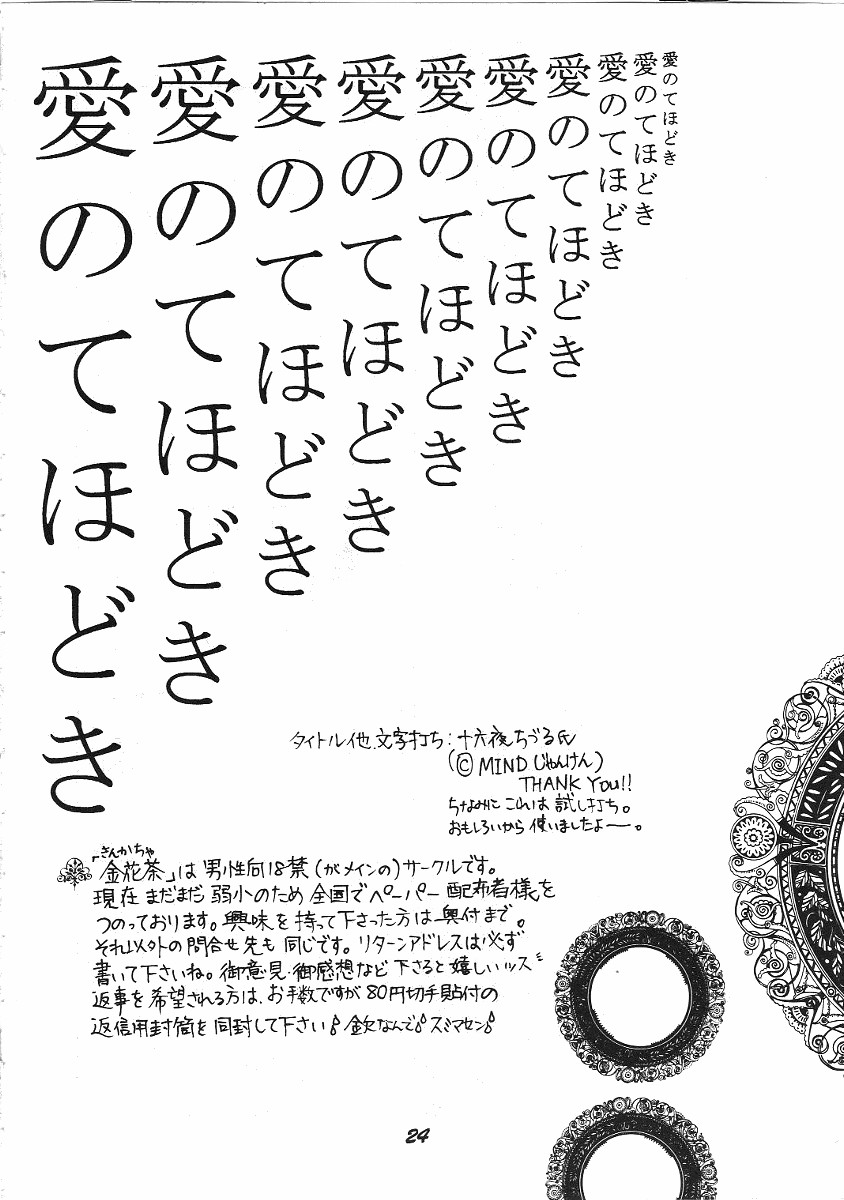 愛のてほどき
愛のてほどき
愛のてほどき
愛のてほどき
愛のてほどき
愛のてほどき
愛のてほどき
愛のてほどき
愛のてほどき
愛のてほどき
タイトル他、文字打ち：十六夜ちづる氏
（©MINDじゃんけん）
THANK YOU!!
ちなみに これは 試し打ち。
おもしろいから 使いましたよー。
きんかちゃ
「金花茶」は 男性向18禁（がメインの）サークルです。
現在 まだまだ 弱小のため 全国で ペーパー 配布者様を
つのっております。興味を 持って下さった方は 奥付まで。
それ以外の 問合せ先も 同じです。リターンアドレスは必ず
書いて下さいね。御意見・御感想など 下さると 嬉しいッス
返事を希望される方は、お手数ですが 80円切手貼付の
返信用封筒を同封して下さい 金欠なんで スミマセン
24